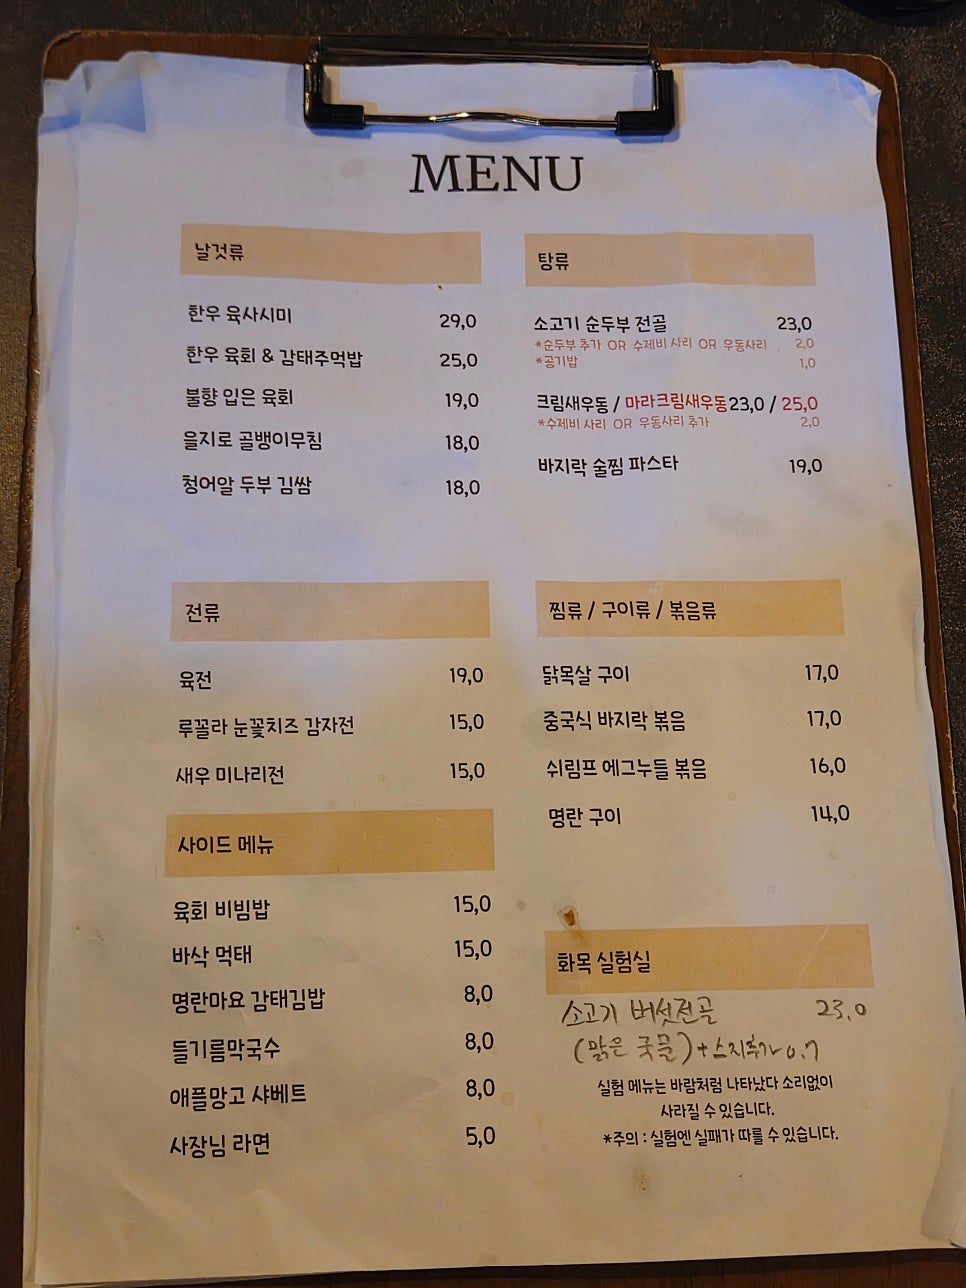 MENU
날것류
한우 육사시미 29,0
한우 육회 & 감태주먹밥 25,0
불향 입은 육회 19,0
을지로 골뱅이무침 18,0
청어알 두부 김쌈 18,0
탕류
소고기 순두부 전골 23,0
*순두부 추가 OR 수제비 사리 OR 우동사리 2,0
*공기밥 1,0
크림새우동 / 마라크림새우동 23,0 / 25,0
*수제비 사리 OR 우동사리 추가 2,0
바지락 술찜 파스타 19,0
전류
육전 19,0
루꼴라 눈꽃치즈 감자전 15,0
새우 미나리전 15,0
찜류 / 구이류 / 볶음류
닭목살 구이 17,0
중국식 바지락 볶음 17,0
쉬림프 에그누들 볶음 16,0
명란 구이 14,0
사이드 메뉴
육회 비빔밥 15,0
바삭 먹태 15,0
명란마요 감태김밥 8,0
들기름막국수 8,0
애플망고 샤베트 8,0
사장님 라면 5,0
화목 실험실
소고기 버섯전골 23.0
(맑은 국물) + 스지추가 0.7
실험 메뉴는 바람처럼 나타났다 소리없이
사라질 수 있습니다.
*주의 : 실험엔 실패가 따를 수 있습니다.